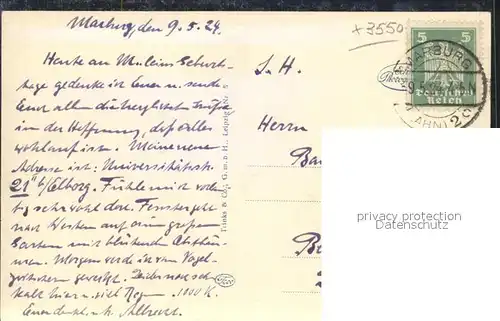 Marburg, den 9.5.24.
Heute an M.leins Geburts-
tage gedenke ich Euer u. sende
Euch allen die herzlichsten Grüße
in der Hoffnung, daß alles
wohlauf ist. Meine neue
Adresse ist: Universitätsstr.
21 II b/Elborg. Fühle mich vorläu-
fig sehr wohl dort. Fenster geht
nach Westen auf einen großen
Garten mit blühenden Obstbäu-
men. Morgens werde ich vom Vogel-
zwitschern geweckt. Leider noch sehr
kalt hier u. viel Regen. 1000 K.
Euer dankb. Albrecht.
Trinks & Co., G.m.b.H., Leipzig
+3550
S. H.
Herrn
5 5
Deutsches
Reich
MARBURG
9.5.24
(LAHN) 2 c
privacy protection
Datenschutz